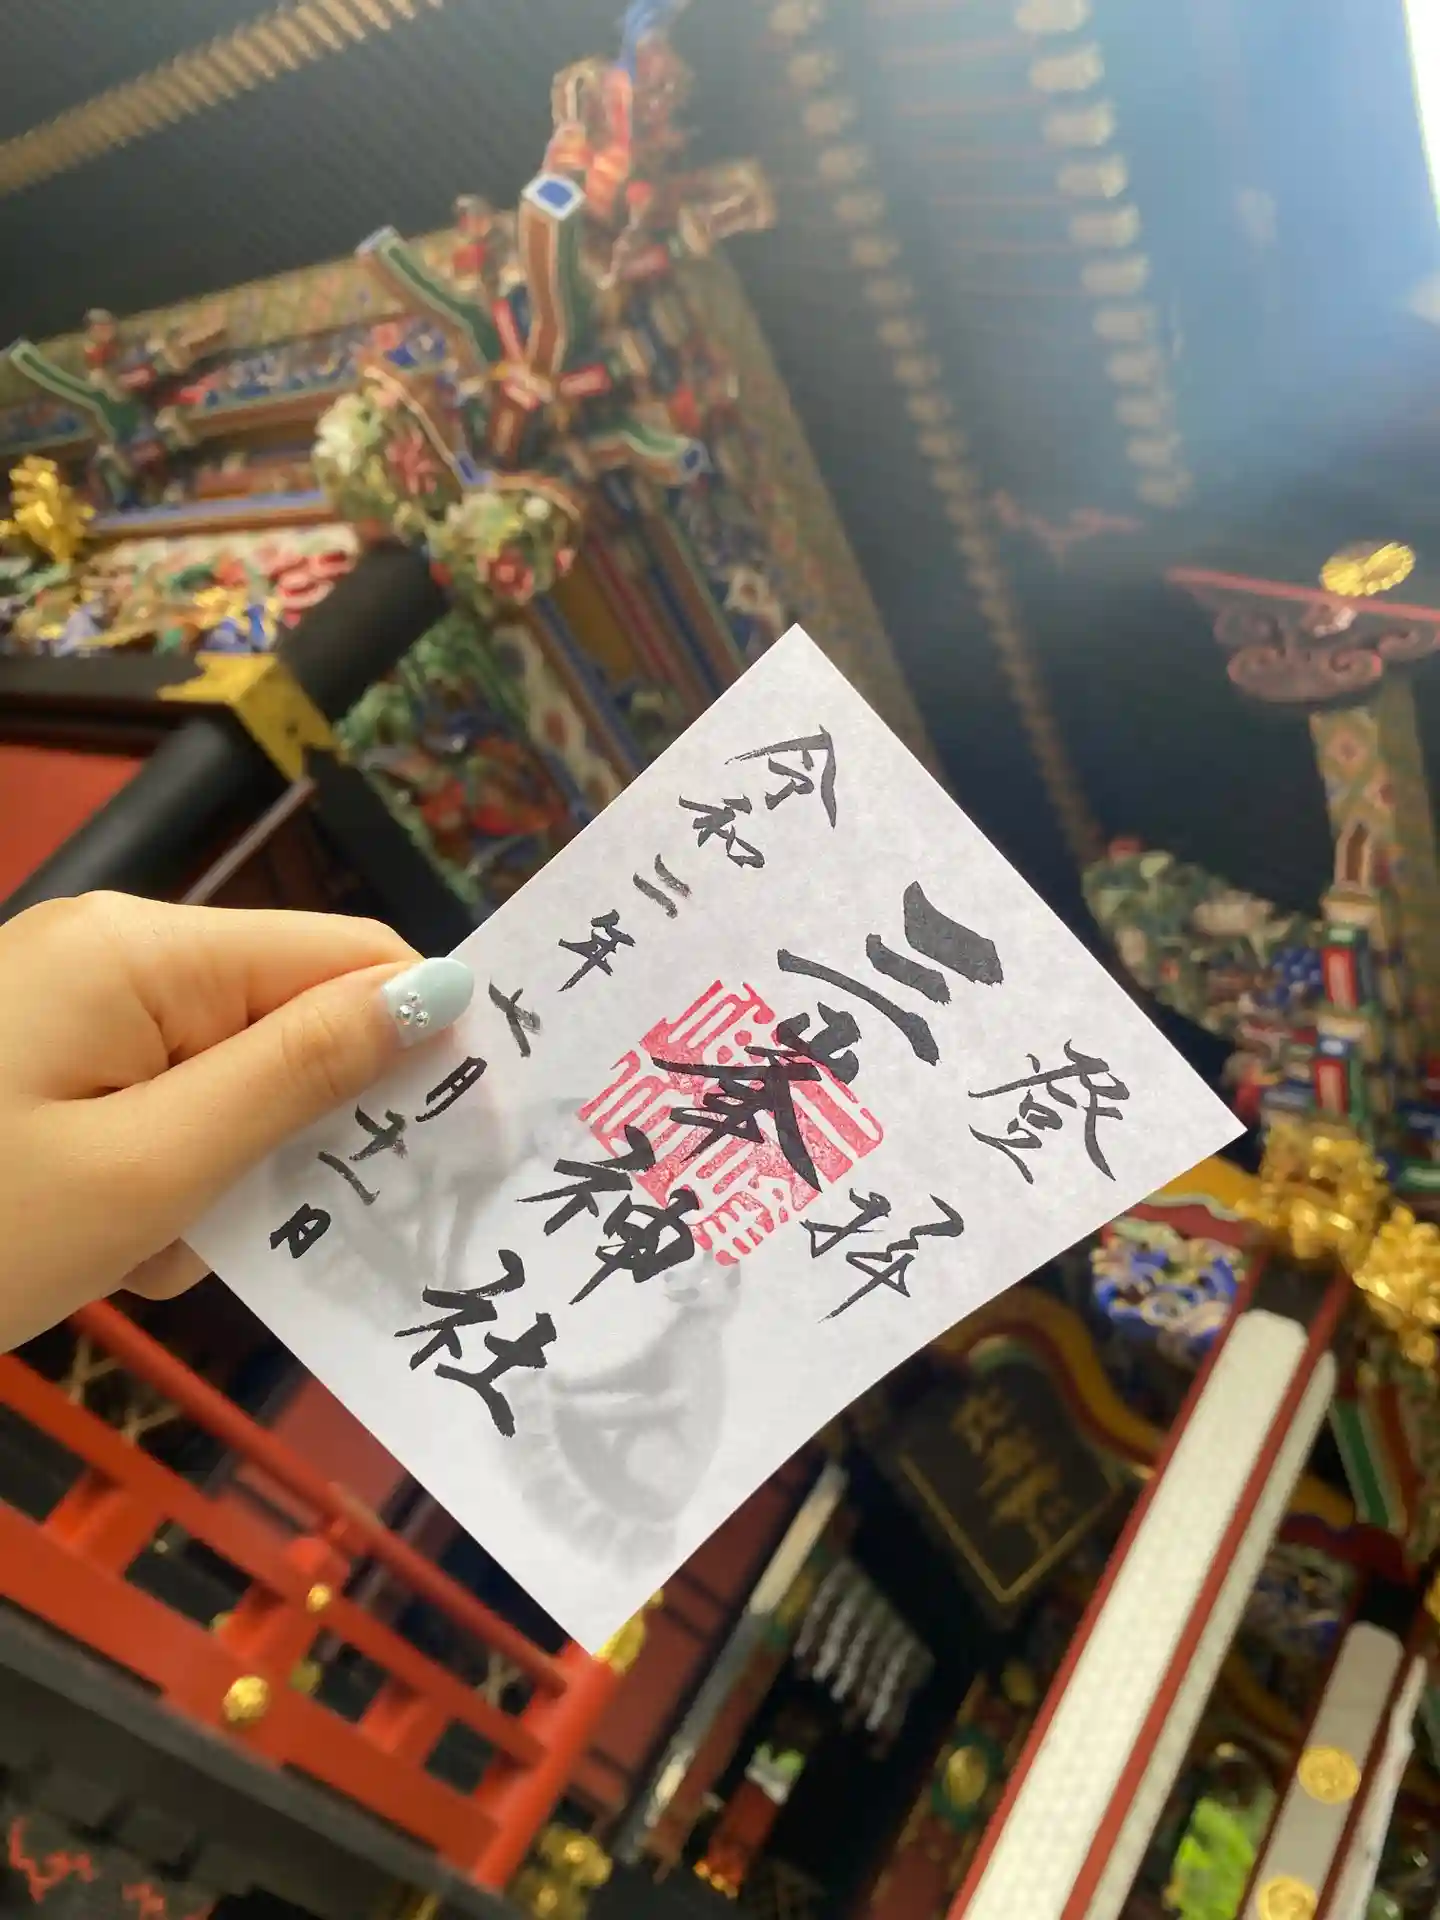 登拝
三峯神社
令和二年七月十二日